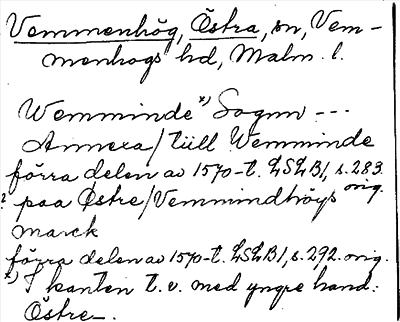 Vemmenhög, Östra, sn, Vem-
menhögs hd, Malm. l.
Wemminde x) Sognn ---
Annexa/tüll Wemminde
förra delen av 1570-t. LSLB1, s. 283. orig.
? paa Østre/Vemmindhöys
marck
förra delen av 1570-t. LSLB1, s. 292. orig.
x) I kanten t. v. med yngre hand:
Östre-.